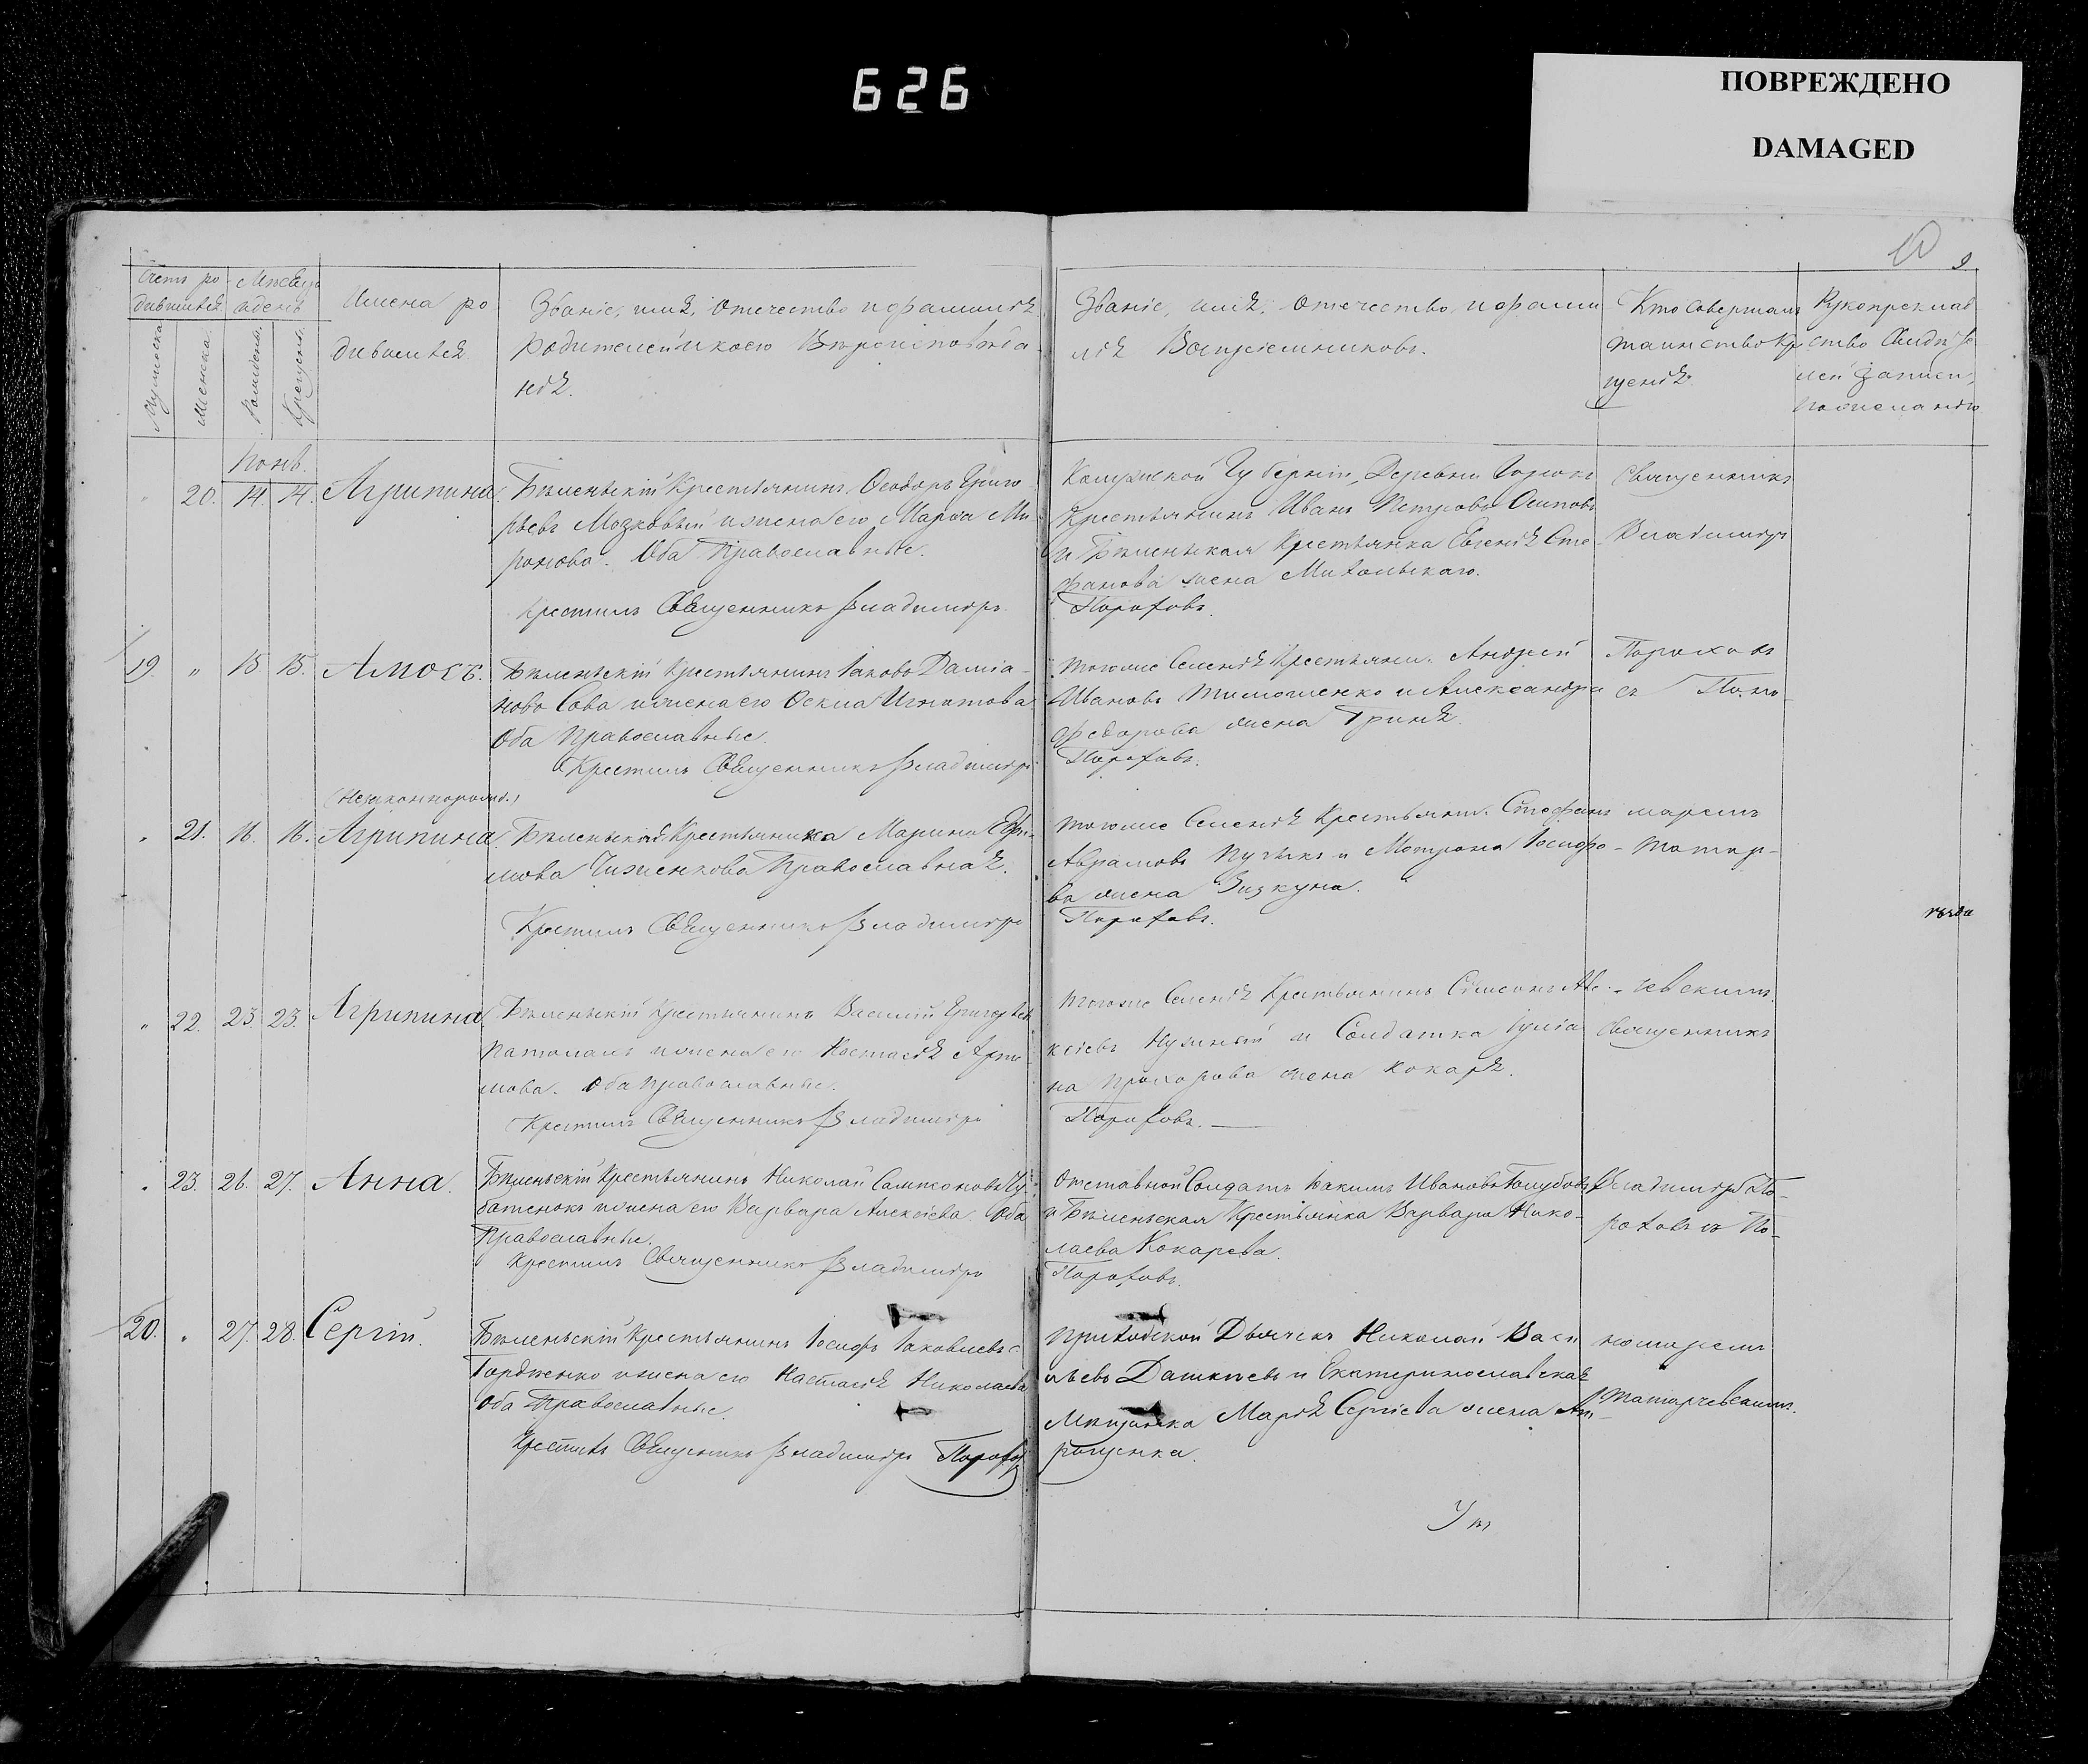 626
ПОВРЕЖДЕНО
DAMAGED
10
9
Счетъ ро
дившихся
Мужеска
Женска
Мѣсяцъ
и день
Рожденія.
Крещенія.
Имена ро
дившихся.
Званіе, имя, отечество и фамилія
Родителей и коего Вѣроисповѣда
нія.
Званіе, имя, отечество, и фами
лія Воспріемниковъ.
Кто совершалъ
таинство Кр
щенія.
Рукоприклад
ство Свидѣте
лей записи,
по желанію
20. 14. 14. Агрипина
Бѣленьскій Крестьянинъ Ѳеодоръ Григо
рьевъ Мозковый и жена его Марѳа Ми
ронова. Оба Православные.
Крестилъ Священникъ Владиміръ
Калужской Губерніи, Деревни
Крестьянинъ Иванъ Петровъ Осиповъ
и Бѣленьская Крестьянка Евгенія Сте
фанова жена Михольскаго.
Пороховъ.
Священникъ
Владиміръ
19. " 15. 15. Амосъ.
Бѣленьскій Крестьянинъ Іаковъ Даміа-
новъ Сова и жена его Ѳекла Игнатова
Оба Православные.
Крестилъ Священникъ Владиміръ
тогоже Селенія Крестьяни. Андрей
Ивановъ Тимошенко и Александра
Федорова жена Гриня.
Пороховъ.
Пороховъ
съ Поно
(Незаконнорожд.)
" 21. 16. 16. Агрипина
Бѣленьская Крестьянка Марина Ефи-
мова Чиженкова Православная.
Крестилъ Священникъ Владиміръ
тогоже Селенія Крестьяни. Стефанъ
Аврамовъ Пузыкъ и Матрона Іосифо-
ва жена Визкуна.
Пороховъ.
маремъ
Татар-
" 22. 23. 23. Агрипина
Бѣленьскій Крестьянинъ Василій Григорьевъ
Патомахъ и жена его Настасія Арте
мова. Оба Православные.
Крестилъ Священникъ Владиміръ
тогоже Селенія Крестьянинъ Симеонъ Але-
ксіевъ Нужный и Солдатка Іуліа
на Прохорова жена Кокаря.
Пороховъ.
чевскимъ.
Священникъ
" 23. 26. 27. Анна.
Бѣленьскій Крестьянинъ Николай Сампсоновъ Чу
батенокъ и жена его Варвара Алексіева. Оба
Православные.
Крестилъ Священникъ Владиміръ
Отставной Солдатъ Іакимъ Ивановъ Голубовъ
и Бѣленьская Крестьянка Варвара Нико-
лаева Кокарева.
Пороховъ.
Владиміръ По-
роховъ съ По-
20. " 27. 28. Сергій.
Бѣленьскій Крестьянинъ Іосифъ Іаковлевъ
Гордѣенко и жена его Настасія Николаева
Оба Православные.
Крестилъ Священникъ Владиміръ Пороховъ
Приходской Дьячекъ Николай Васи
льевъ Дашкѣевъ и Екатеринославская
Мѣщанка Марія Сергіева жена Ан
рощенка.
номаремъ
Татарчевскимъ.